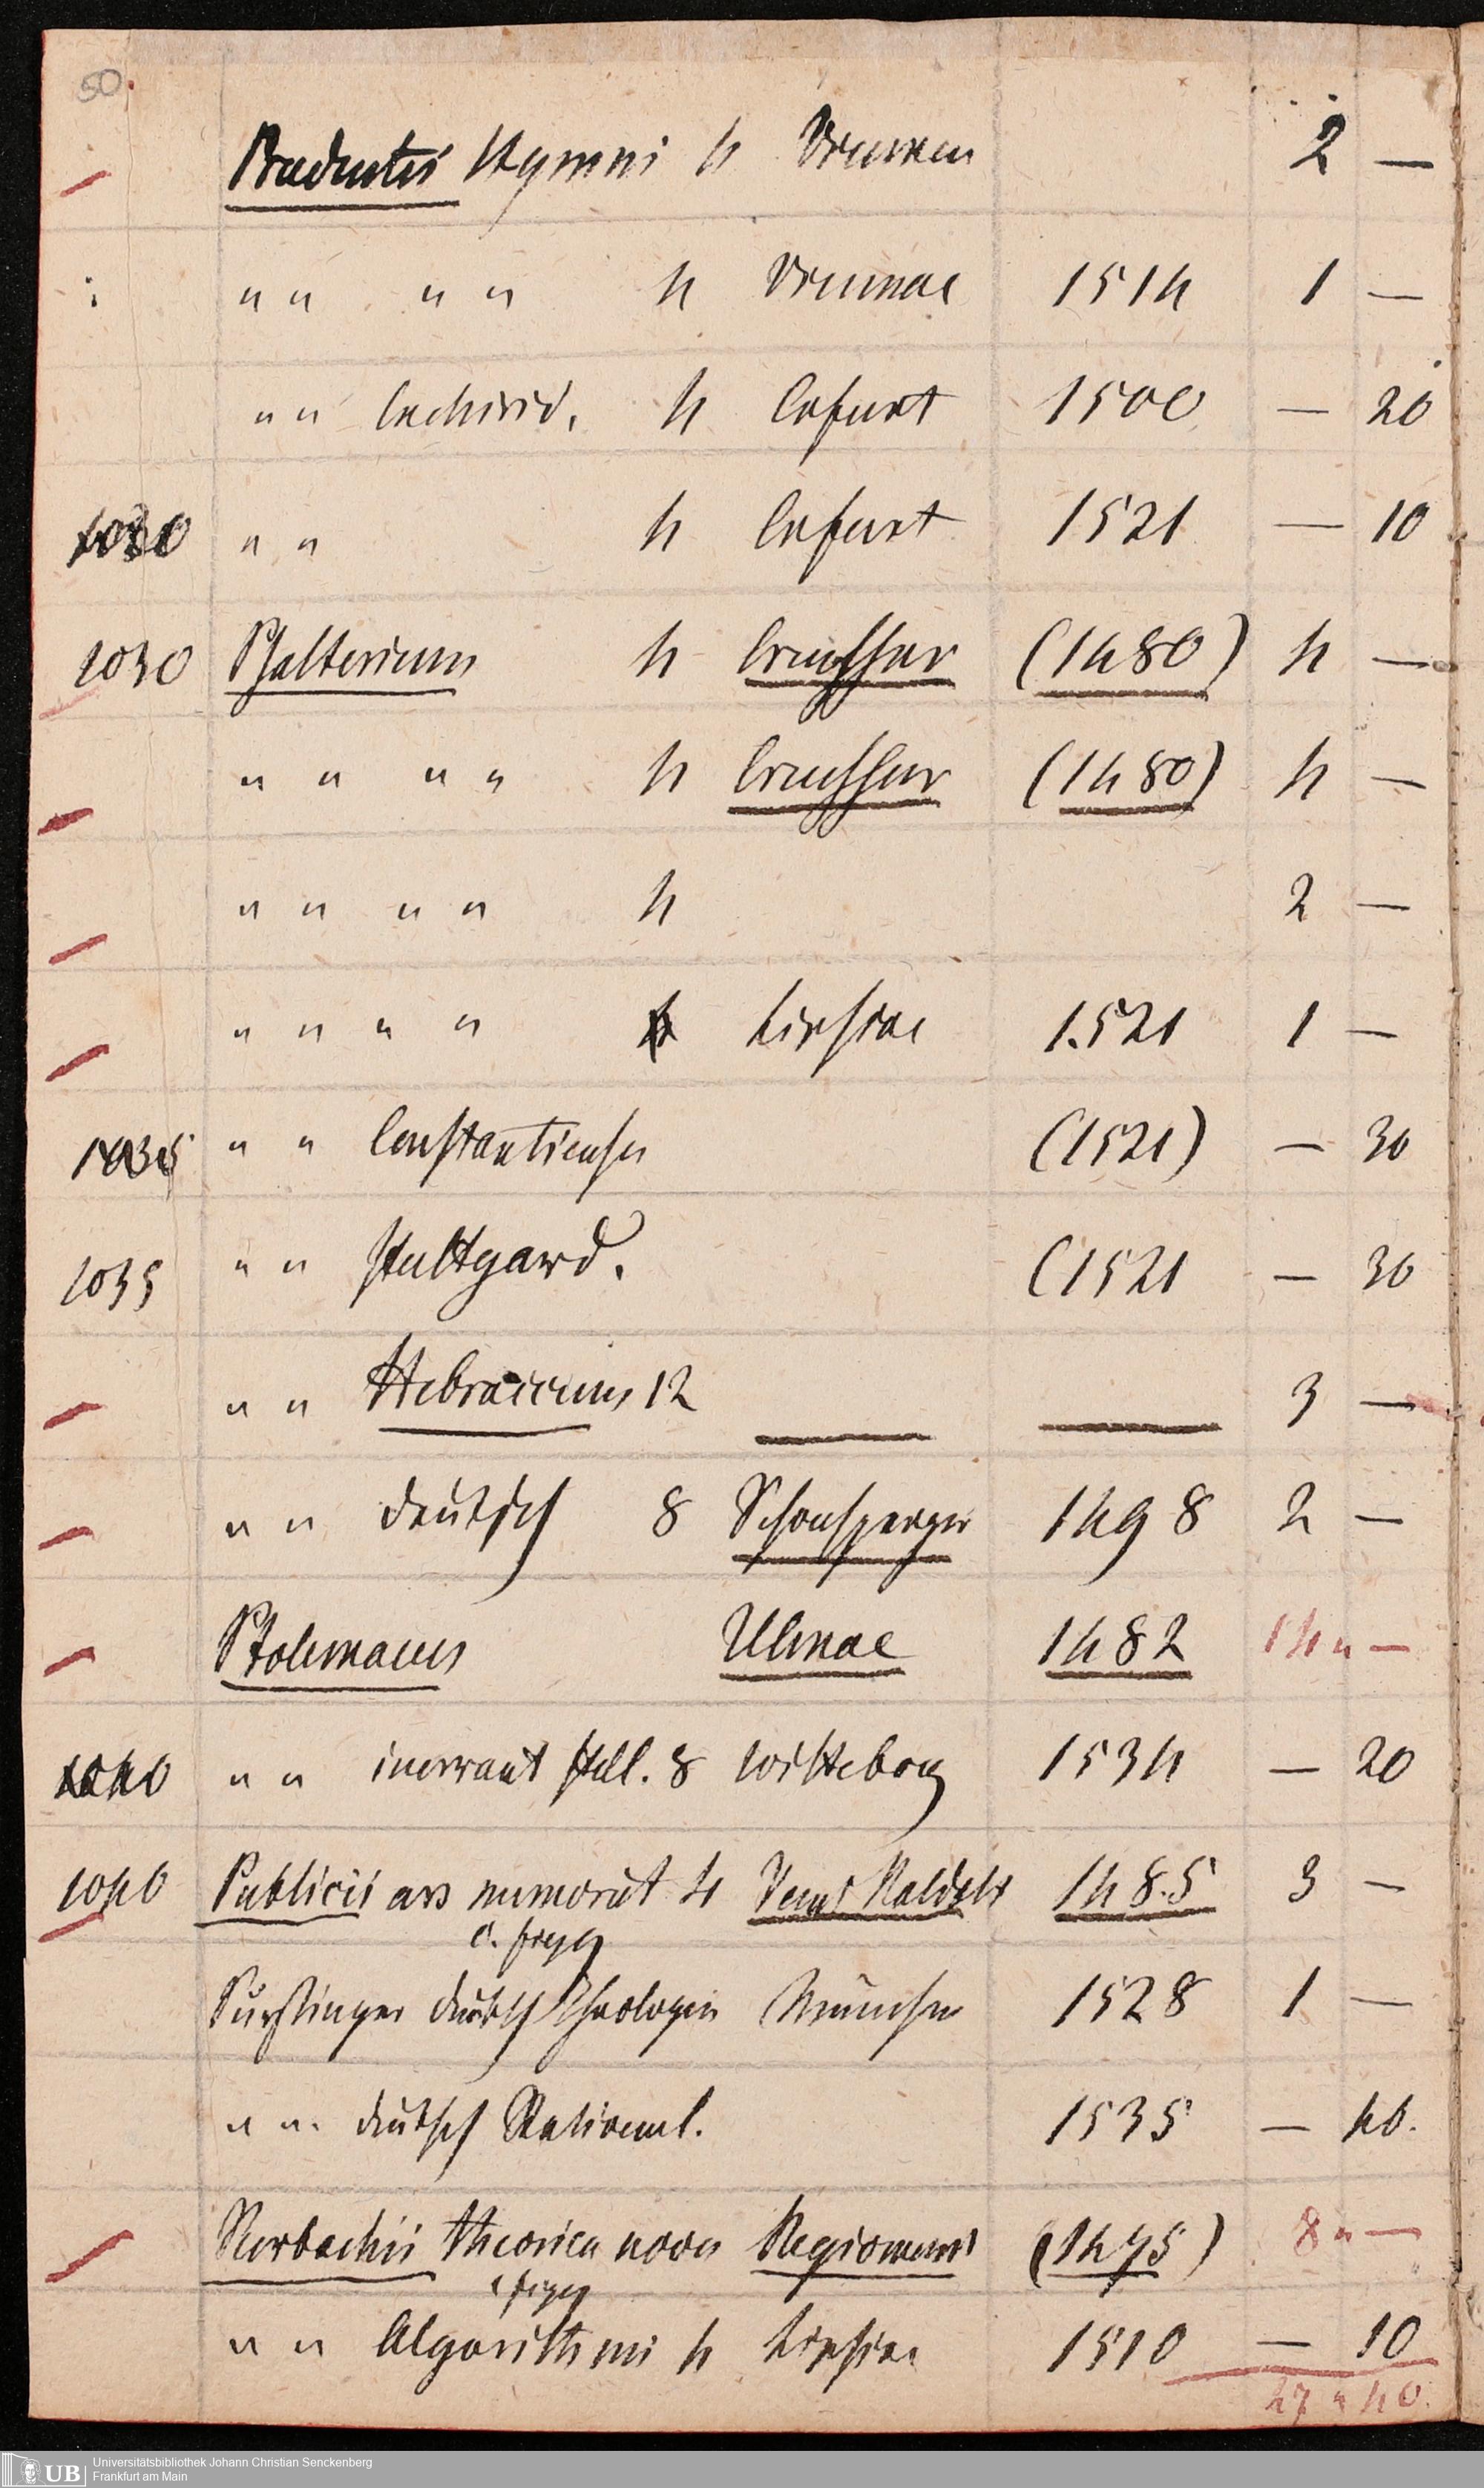 50.
Prudentii Hymni 4 Viennen 2 —
" " " " 4 Viennae 1514 1 —
" " Enchirid. 4 Erfurt 1500 — 20
1030 " " 4 Erfurt 1521 — 10
1030 Psalterium 4 Creussner (1480) 4 —
" " " " 4 Creussner (1480) 4 —
" " " " 4 2 —
" " " " 4 Lipsiae 1521 1 —
1035 " " Constantiense (1521) — 30
1035 " " Stuttgard. (1521 — 30
" " Hebraicum 12 — — 3 —
" " deutsch 8 Schonsperger 1498 2 —
Ptolemaeus Ulmae 1482 14 " —
1040 " " inerrant stell. 8 Witteberg 1534 — 20
1040 Publicii ars memorat 4 Venet Ratdolt 1485 3 —
c. figg
Pürstinger deutsch Theologie München 1528 1 —
" " deutsch Rational. 1535 — 40.
Purbachii theorica nova Regiomont (1475) 8 " —
c figg
" " Algorithmi 4 Lipsiae 1510 — 10
47 " 40.
UB Universitätsbibliothek Johann Christian Senckenberg
Frankfurt am Main